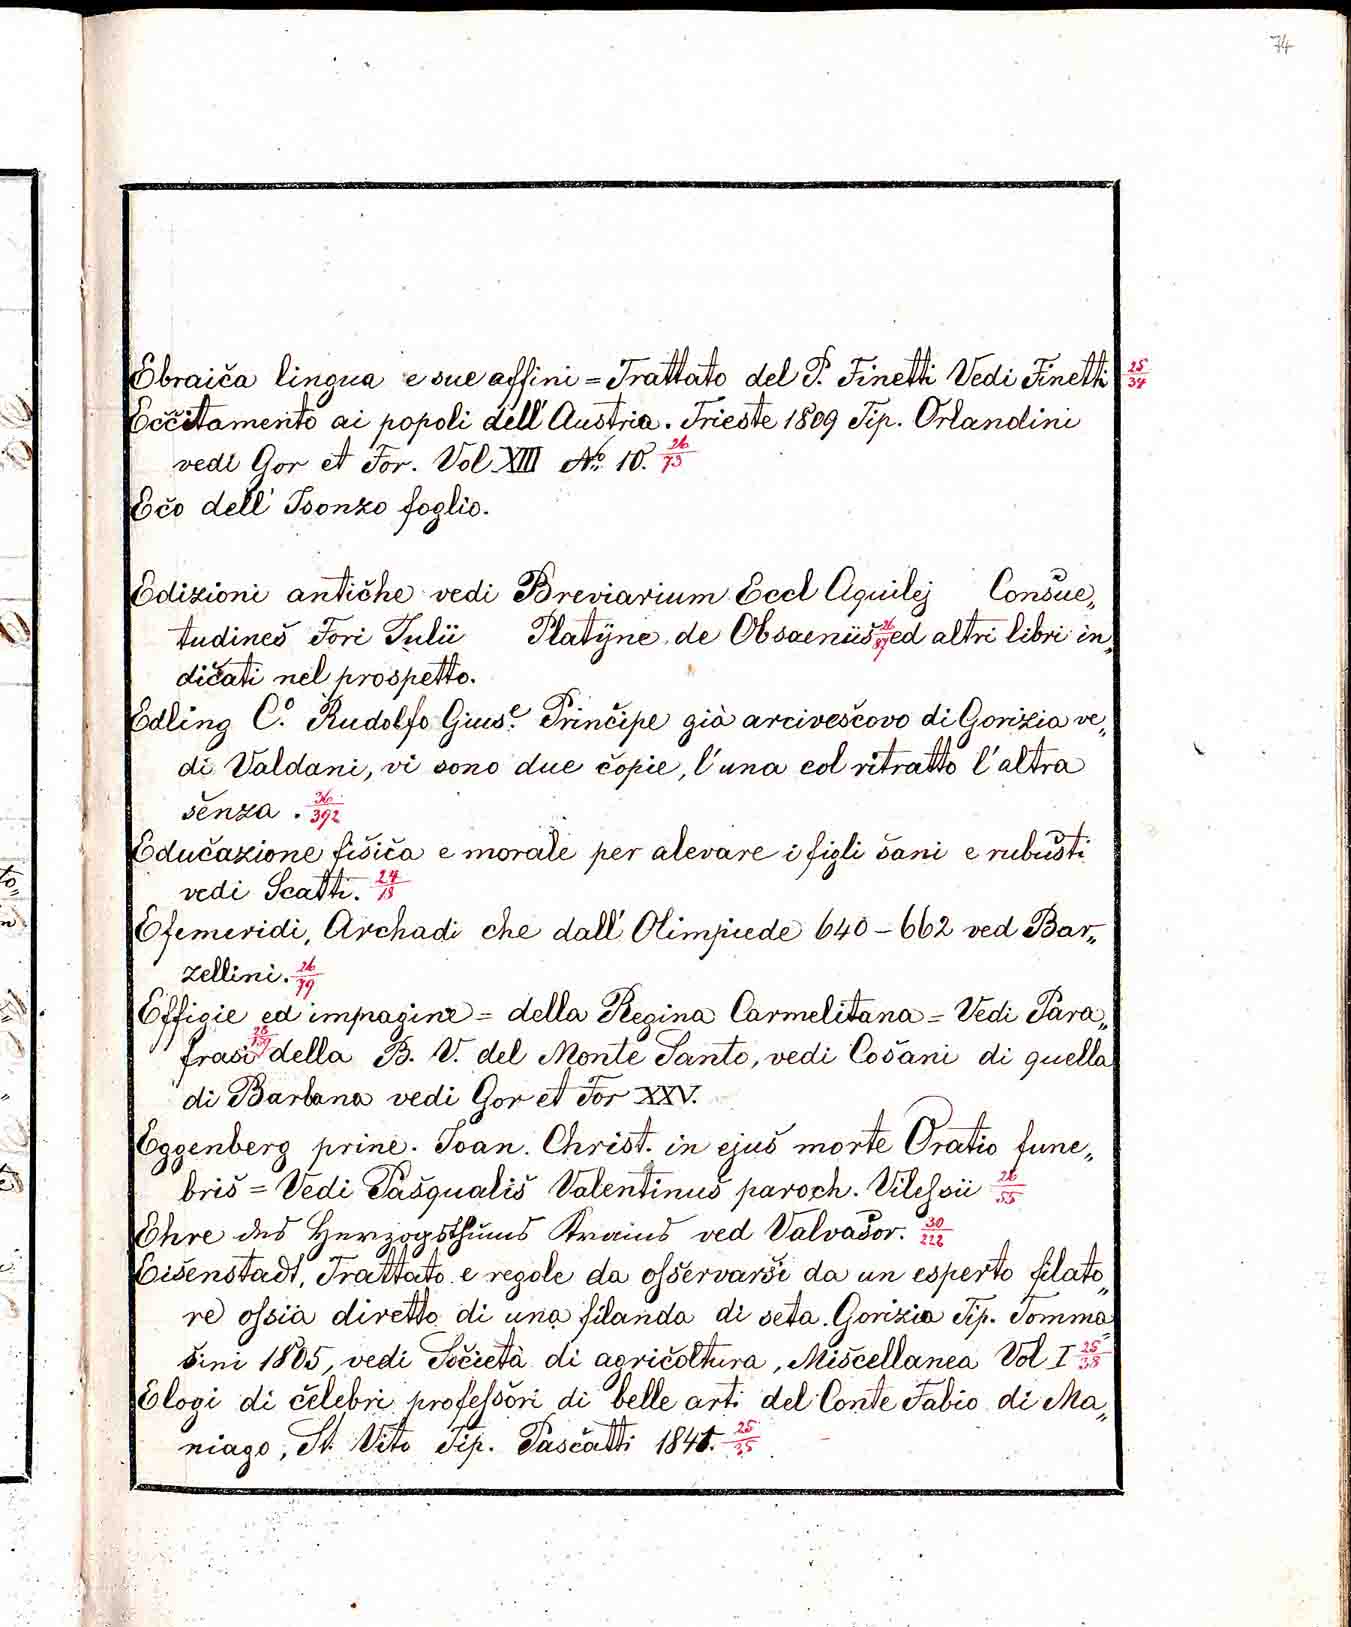 74
Ebraiča lingua e sue affini = Trattato del P. Finetti Vedi Finetti 25/34
Eččitamento ai popoli dell' Austria. Trieste 1809 Tip. Orlandini
vedi Gor et For. Vol XIII No. 10. 26/73
Ečo dell' Isonzo foglio.
Edizioni antiče vedi Breviarium Eccl Aquilej Consue„
tudineš Fori Julii Platÿne de Obsoeniiš 26/87 ed altri libri in„
dičati nel prospetto.
Edling C.o Rudolfo Gius.e Prinčipe già arcivesčovo di Gorizia ve„
di Valdani, vi sono due čopie, l'una col ritratto l'altra
šenza . 36/392
Edučazione fišiča e morale per alevare i figli šani e rubušti
vedi Scatti. 24/18
Efemeridi, Archadi che dall' Olimpiede 640 – 662 ved Bar„
zellini. 26/79
Effigie ed impagine = della Regina Carmelitana = Vedi Para„
frasi della B. V. del Monte Santo, vedi Cošani di quella
di Barbana vedi Gor et For XXV.
Eggenberg prine. Joan. Christ. in ejuš morte Oratio fune„
briš = Vedi Pašquališ Valentinuš paroch. Vilessii 26/55
Ehre des Herzogsthums Krains ved Valvašor. 30/222
Eišenstadt, Trattato e regole da osšervarši da un esperto filato„
re ossia diretto di una filanda di seta. Gorizia Tip. Tomma„
šini 1805, vedi Sočietà di agričoltura, Mišcellanea Vol I 25/38
Elogi di čelebri professšori di belle arti del Conte Fabio di Ma„
niago, St. Vito Tip. Pasčatti 1841. 25/35